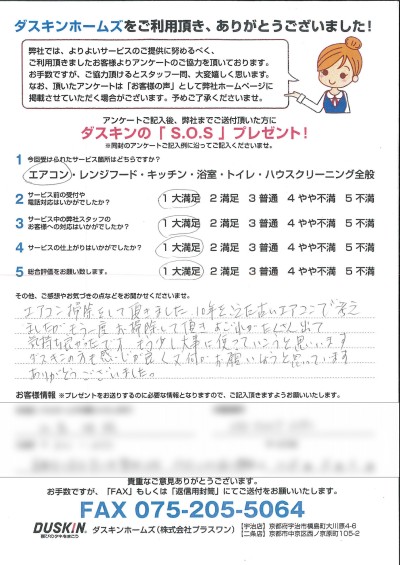 ダスキンホームズをご利用頂き、ありがとうございました！
弊社では、よりよいサービスのご提供に努めるべく、
ご利用頂きましたお客様よりアンケートのご協力を頂いております。
お手数ですが、ご協力頂けるとスタッフ一同、大変嬉しく思います。
なお、頂いたアンケートは「お客様の声」として弊社ホームページに
掲載させていただく場合がございます。予めご了承くださいませ。
アンケートご記入後、弊社までご送付頂いた方に
ダスキンの「S.O.S」プレゼント！
※同封のアンケートご記入例に沿ってご記入くださいませ。
1 今回受けられたサービス箇所はどちらですか？
エアコン・レンジフード・キッチン・浴室・トイレ・ハウスクリーニング全般
2 サービス前の受付や
電話対応はいかがでしたか？ 1 大満足 2 満足 3 普通 4 やや不満 5 不満
3 サービス中の弊社スタッフの
お客様への対応はいかがでしたか？ 1 大満足 2 満足 3 普通 4 やや不満 5 不満
4 サービスの仕上がりはいかがでしたか？ 1 大満足 2 満足 3 普通 4 やや不満 5 不満
5 総合評価をお願い致します。 1 大満足 2 満足 3 普通 4 やや不満 5 不満
その他、ご感想やお気づきの点などをお聞かせくださいませ。
エアコン掃除をして頂きました 10年を
古いエアコンで考え
ましたがもう一度お掃除して頂き よごれがたくさん出て
気持ち良かったです もう少し大事に使っていこうと思います
ダスキンの方も感じが良く又何かお願いしようと思っています
ありがとうございました。
お客様情報 ※プレゼントをお送りするのに必要な情報となりますので、ご記入頂きますようお願いいたします。
貴重なご意見ありがとうございます。
お手数ですが、「FAX」もしくは「返信用封筒」にてご送付をお願いいたします。
FAX 075-205-5064
DUSKIN 喜びのタネをまこう ダスキンホームズ（株式会社プラスワン） 【宇治店】京都府宇治市槇島町大川原4-6
【二条店】京都市中京区西ノ京原町105-2